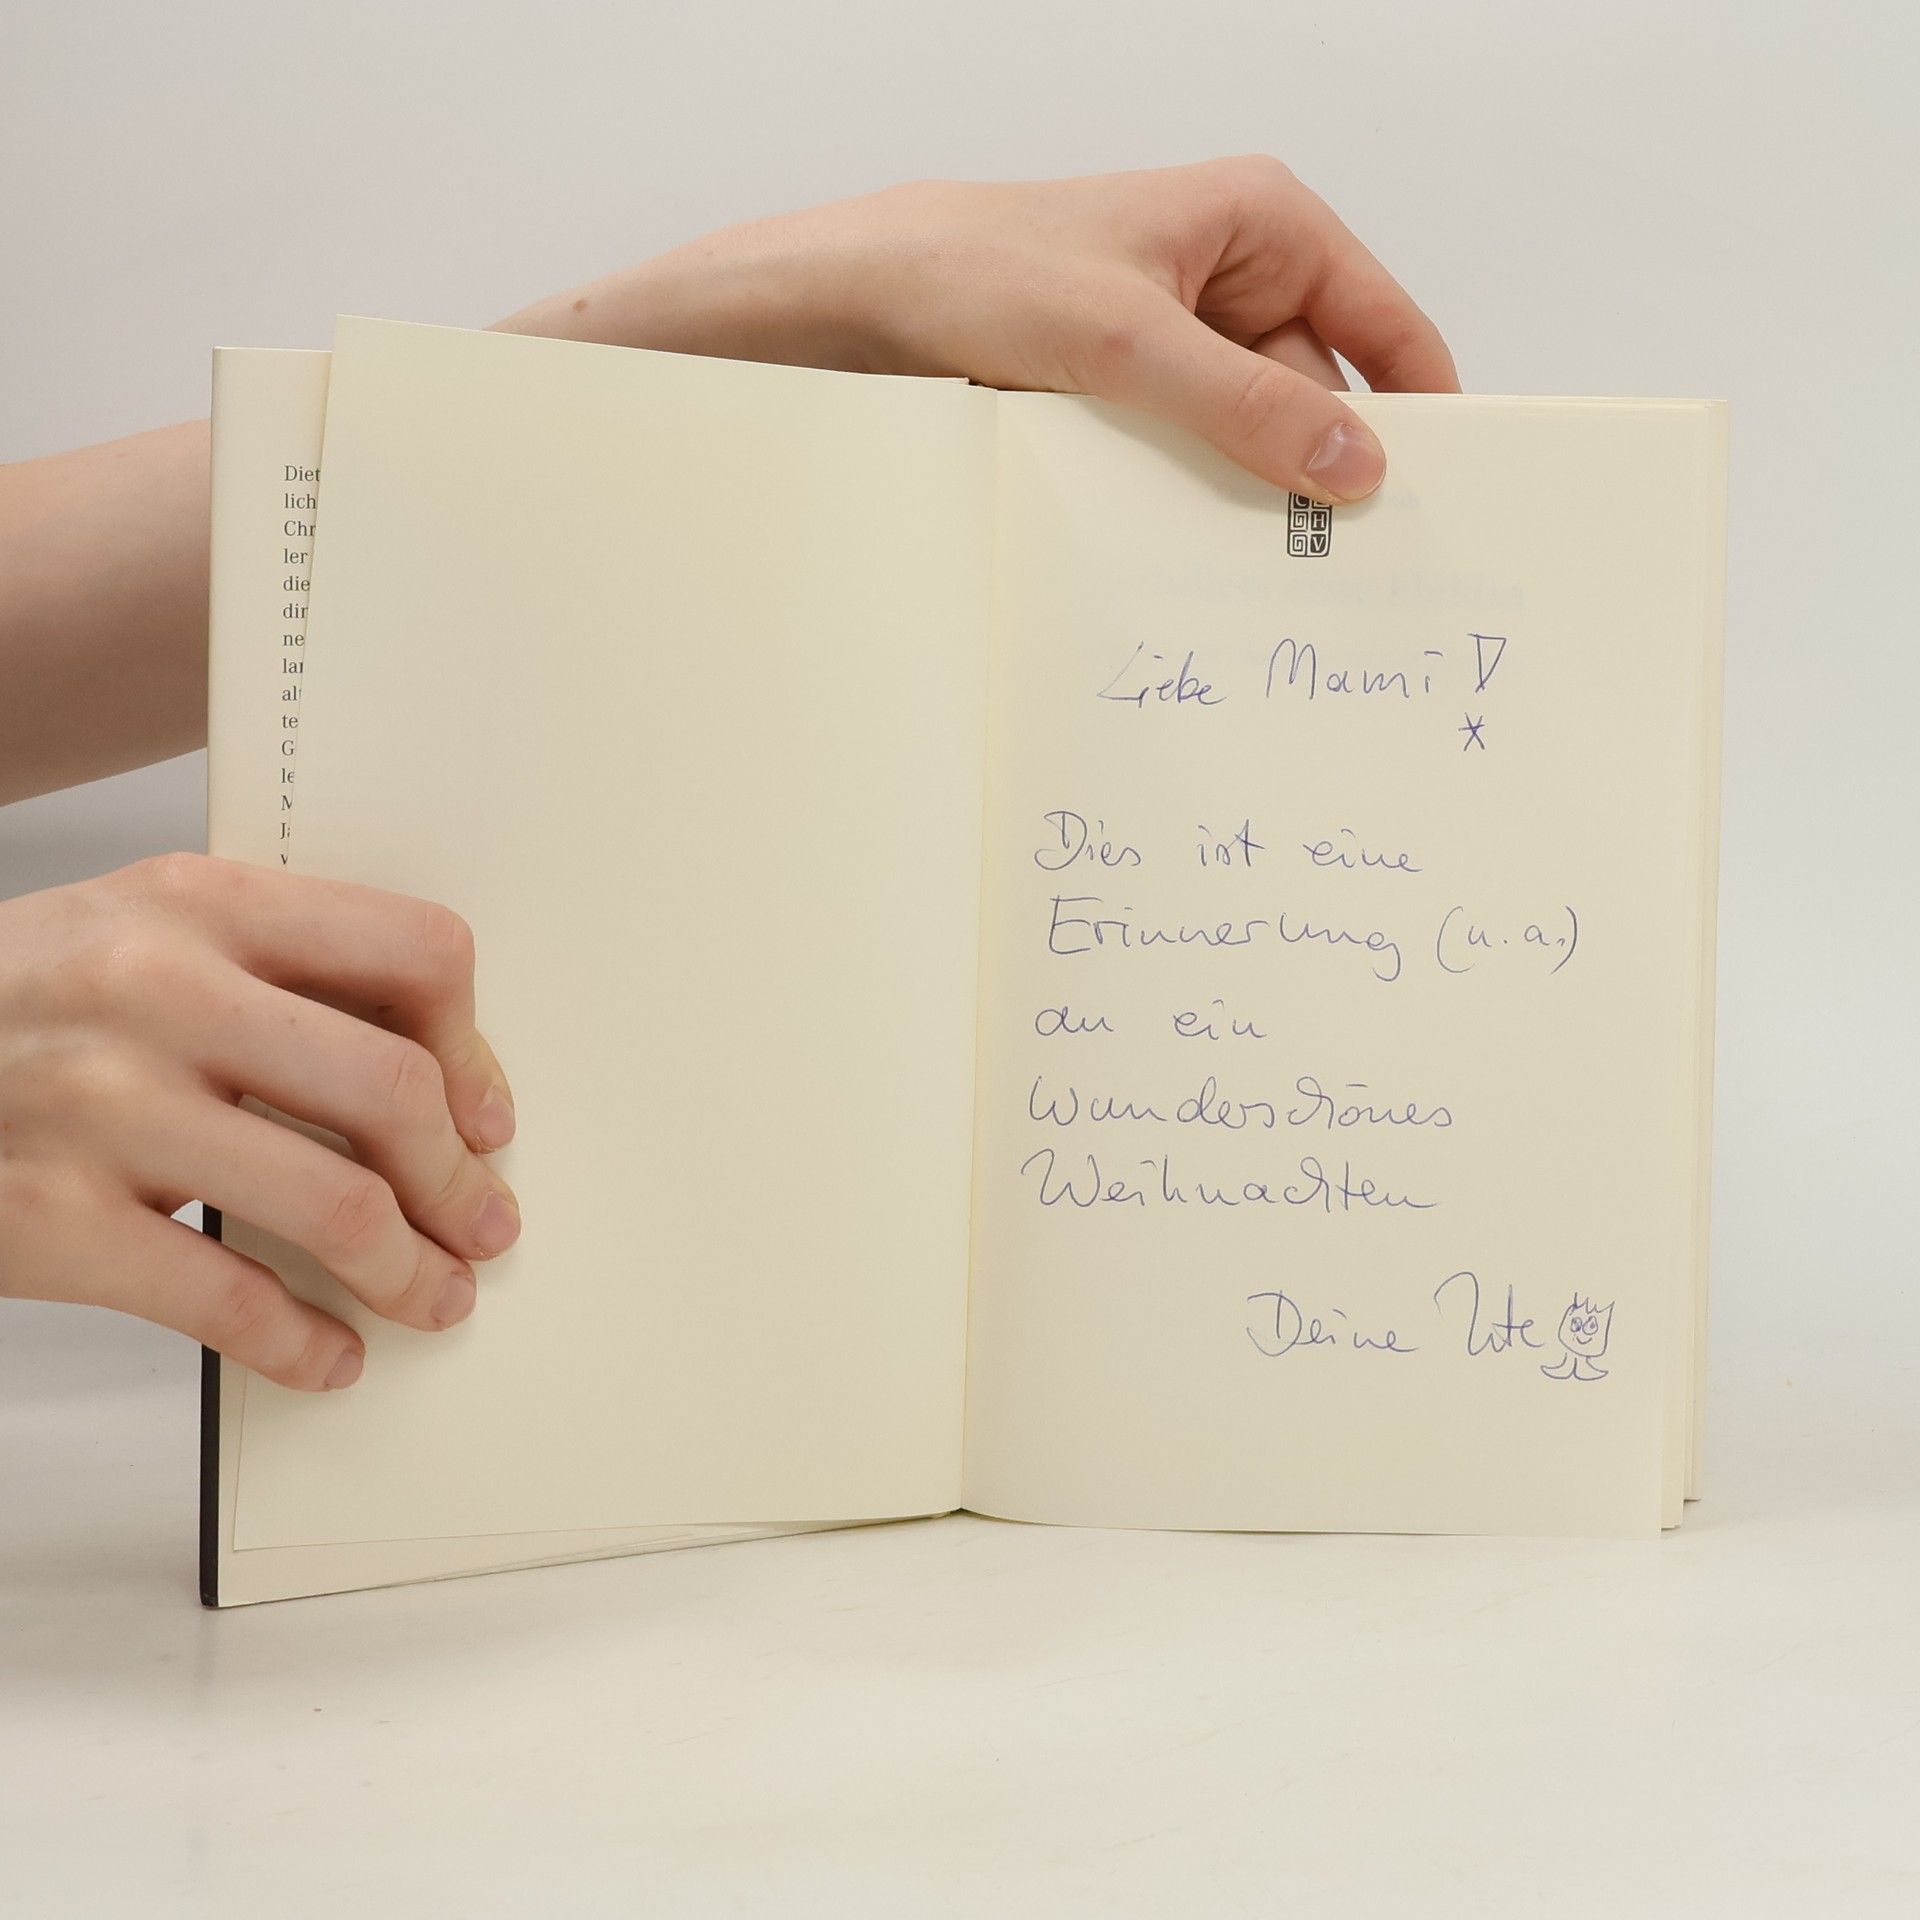 Diet
lich
Chr
ler
die
dir
ne
lar
alt
te
G
le
M
Ja
v
C
H
V
Liebe Mami!
Dies ist eine
Erinnerung (u.a.)
an ein
Wunderschönes
Weihnachten
Deine Ute